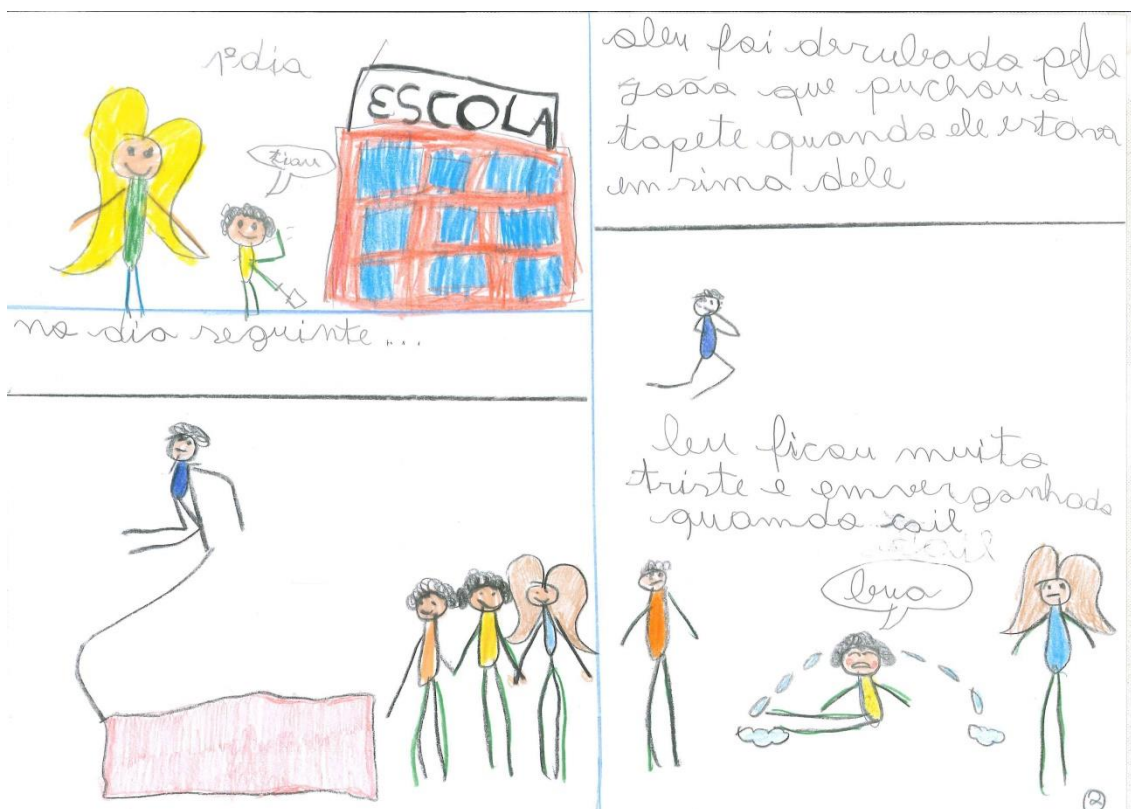 1º dia
ESCOLA
tiau
no dia seguinte...
aleu foi derubado pelo
joão que puchou o
tapete quando ele estava
em sima dele
leu ficou muito
triste e emvergonhado
quamdo cail
cail
bua
2